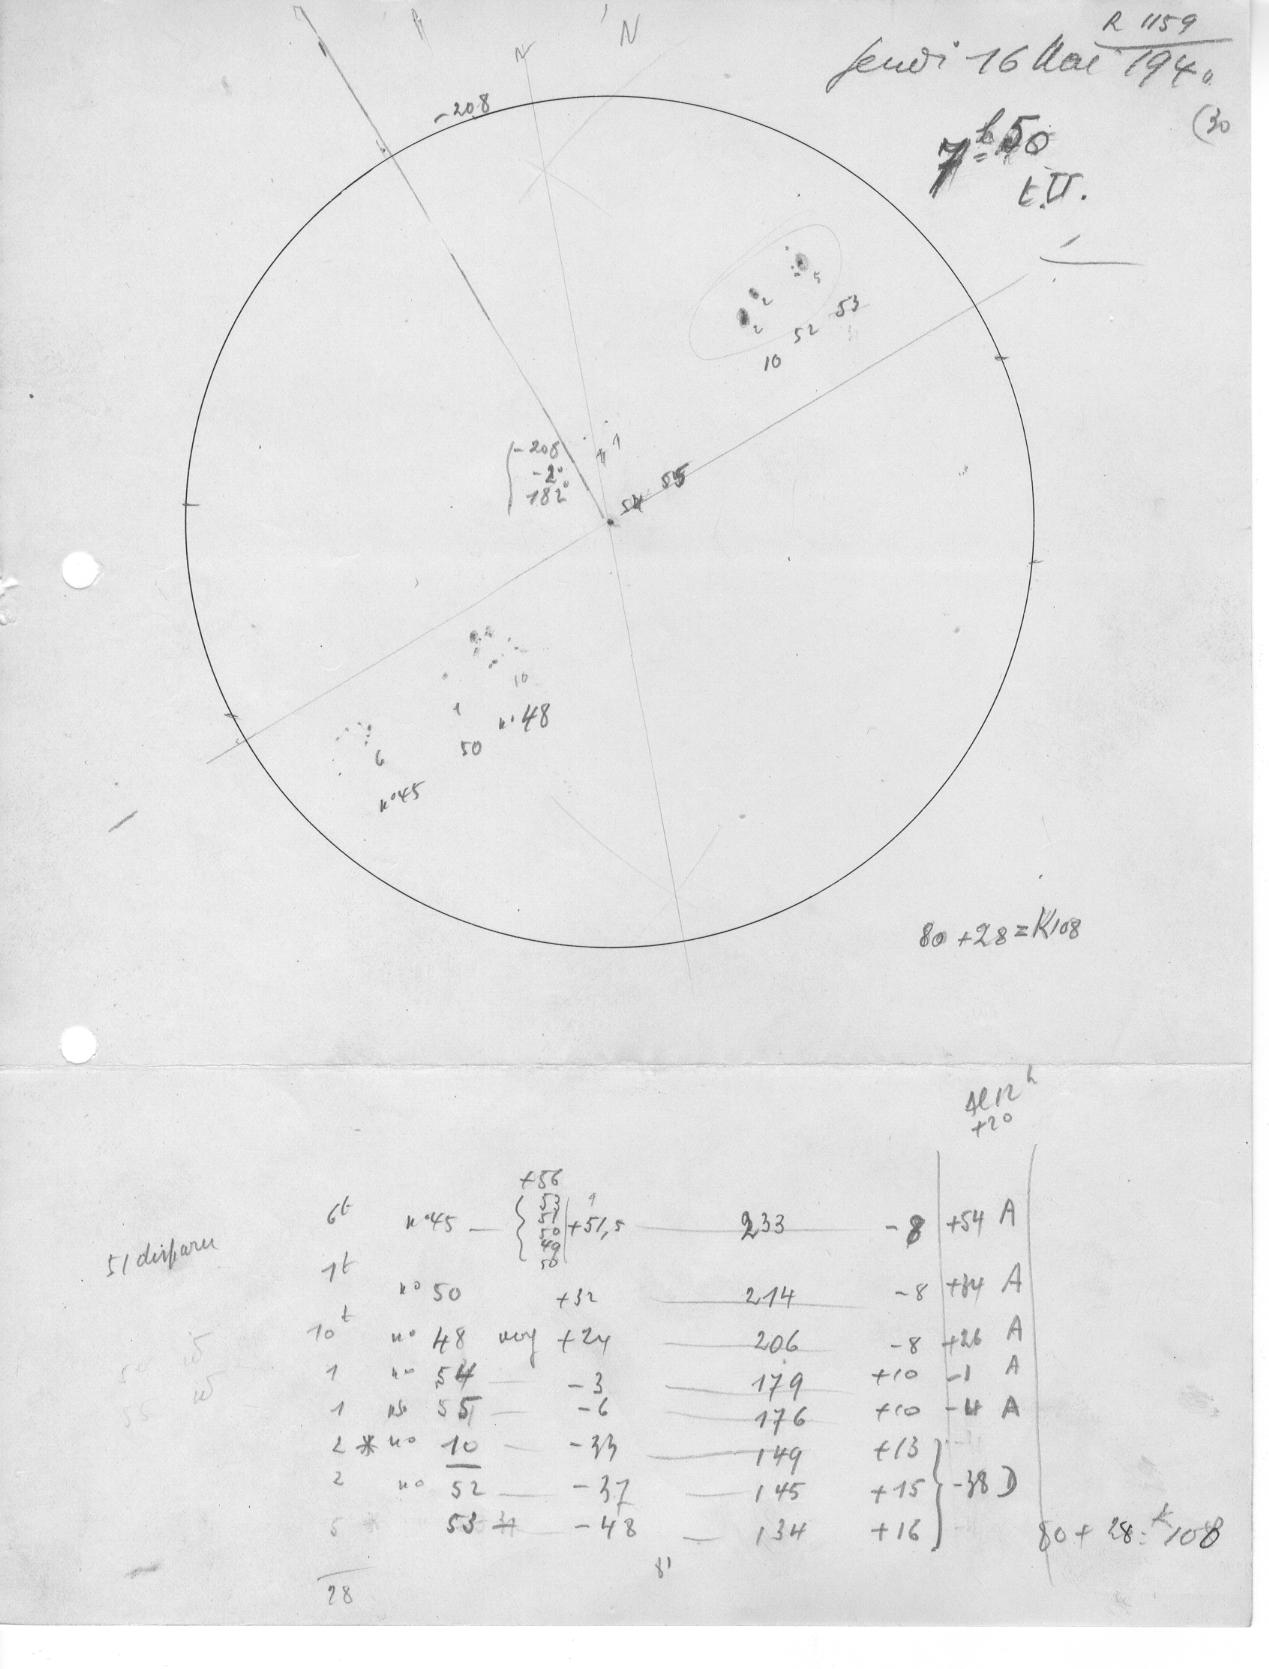 R 1159
Jeudi 16 Mai 1940
(30
7h50
t.U.
N
N
-208
5
2
2
53
52
10
1
-208
-2°
182°
54 55
10
n° 48
1
50
6
n° 45
80 + 28 = K108
At 12h
+20
+56
53
51
50
49
50
6t n° 45 — +51,5 — 233 -8 +54 A
51 disparu
1t n° 50 +32 — 214 -8 +34 A
10t n° 48 moy +24 — 206 -8 +26 A
1 n° 54 — -3 — 179 +10 -1 A
1 no 55 — -6 — 176 +10 -4 A
2 * no 10 — -33 — 149 +13
2 no 52 — -37 — 145 +15 -38 D
5 53 — -48 — 134 +16
80 + 28 = K108
28